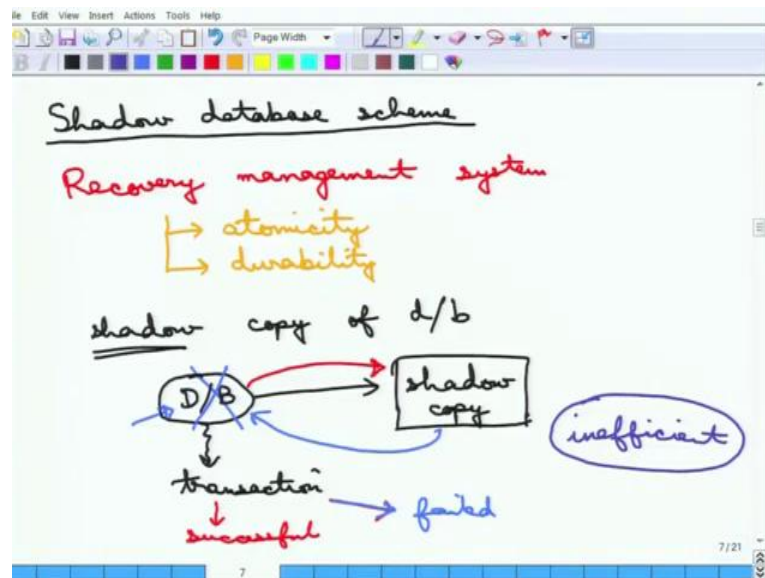 File Edit View Insert Actions Tools Help
Page Width
B I
Shadow database scheme
Recovery management system
→ atomicity
→ durability
shadow copy of d/b
D/B
shadow
copy
inefficient
transaction
failed
successful
7/21
7